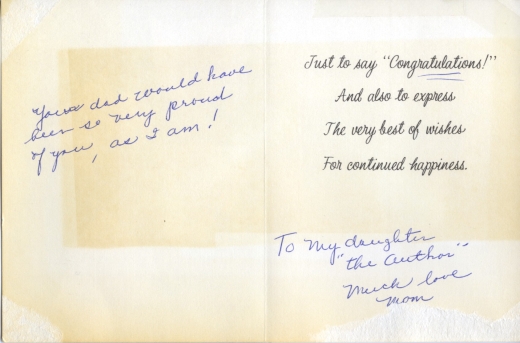 Your dad would have
been so very proud
of you, as I am!
Just to say “Congratulations!”
And also to express
The very best of wishes
For continued happiness.
To my daughter
"the Author"
Much love
Mom